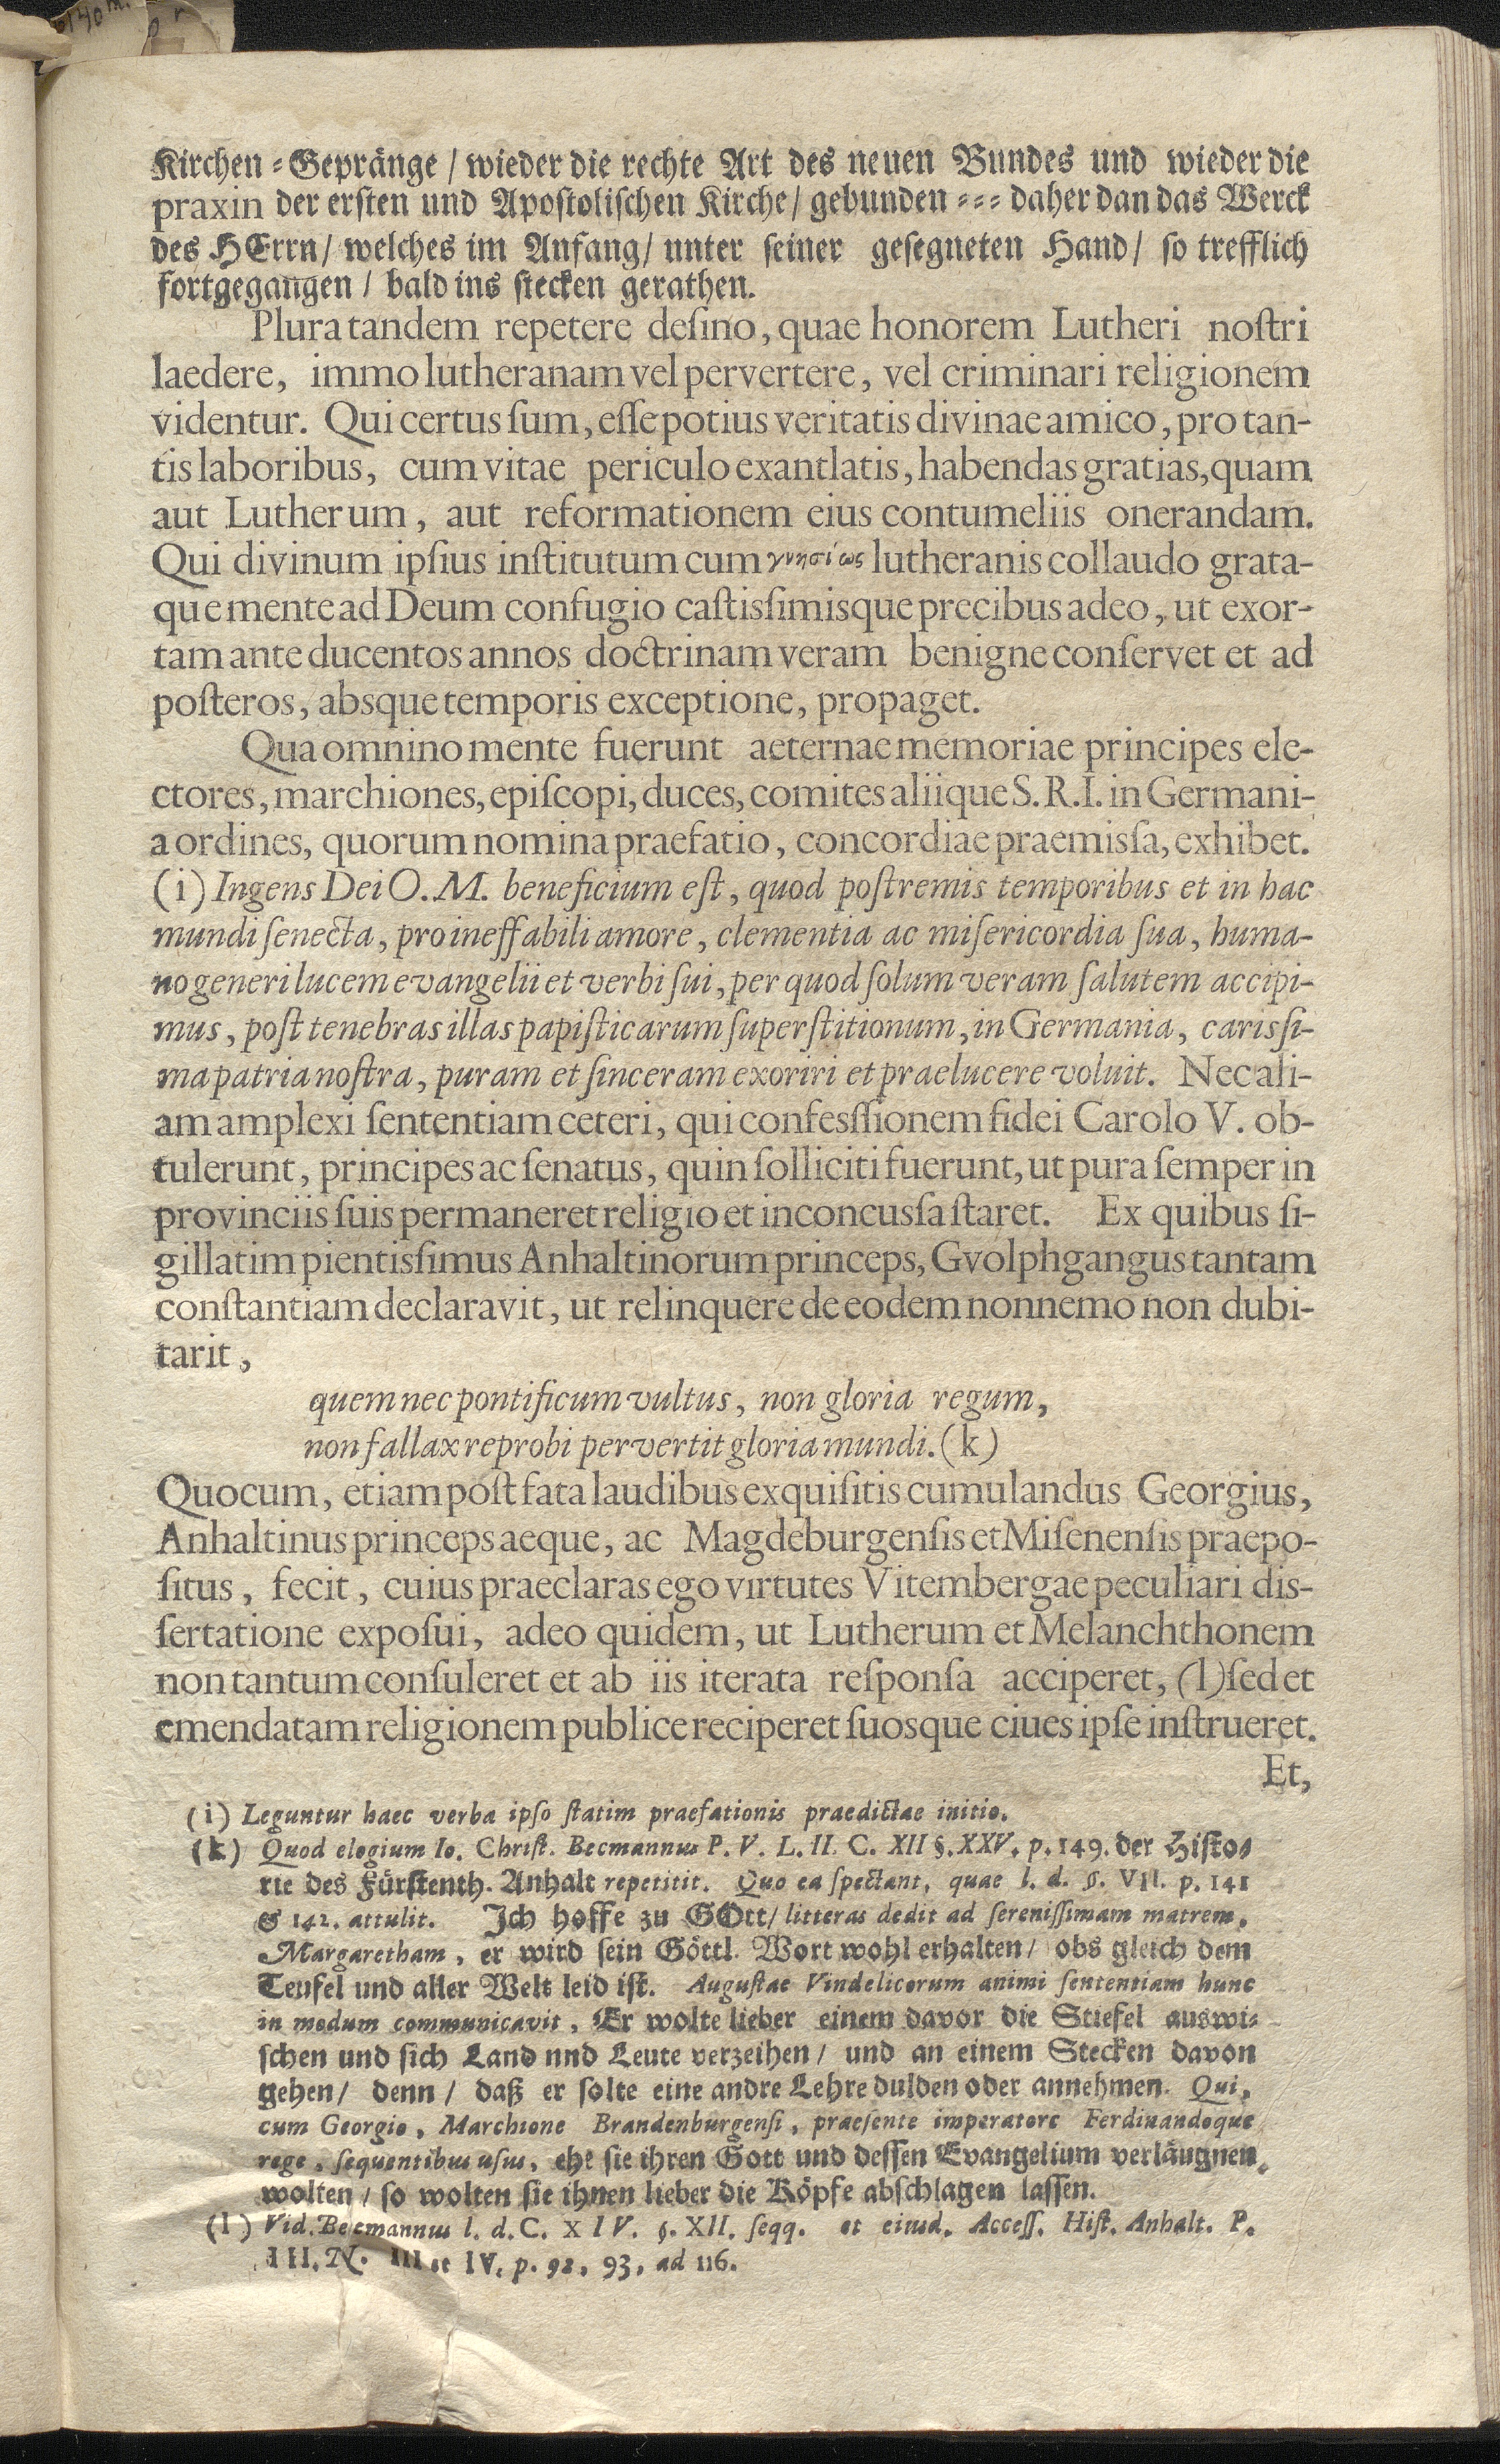 Kirchen-Gepränge / wieder die rechte Art des neuen Bundes und wieder die
praxin der ersten und Apostolischen Kirche / gebunden --- daher dan das Werck
des HErrn / welches im Anfang / unter seiner gesegneten Hand / so trefflich
fortgegangen / bald ins stecken gerathen.
Plura tandem repetere deſino, quae honorem Lutheri noſtri
laedere, immo lutheranam vel pervertere, vel criminari religionem
videntur. Qui certus ſum, eſſe potius veritatis divinae amico, pro tan-
tis laboribus, cum vitae periculo exantlatis, habendas gratias, quam
aut Lutherum, aut reformationem eius contumeliis onerandam.
Qui divinum ipſius inſtitutum cum γνησίως lutheranis collaudo grata-
que mente ad Deum confugio caſtisſimisque precibus adeo, ut exor-
tam ante ducentos annos doctrinam veram benigne conſervet et ad
poſteros, absque temporis exceptione, propaget.
Qua omnino mente fuerunt aeternae memoriae principes ele-
ctores, marchiones, epiſcopi, duces, comites aliique S. R. I. in Germani-
a ordines, quorum nomina praefatio, concordiae praemisſa, exhibet.
(i) Ingens Dei O. M. beneficium eſt, quod poſtremis temporibus et in hac
mundi ſenecta, pro ineffabili amore, clementia ac miſericordia ſua, huma-
no generi lucem evangelii et verbi ſui, per quod ſolum veram ſalutem accipi-
mus, poſt tenebras illas papiſticarum ſuperſtitionum, in Germania, carisſi-
ma patria noſtra, puram et ſinceram exoriri et praelucere voluit. Nec ali-
am amplexi ſententiam ceteri, qui confesſſionem fidei Carolo V. ob-
tulerunt, principes ac ſenatus, quin ſolliciti fuerunt, ut pura ſemper in
provinciis ſuis permaneret religio et inconcusſa ſtaret. Ex quibus ſi-
gillatim pientisſimus Anhaltinorum princeps, Gvolphgangus tantam
conſtantiam declaravit, ut relinquere de eodem nonnemo non dubi-
tarit,
quem nec pontificum vultus, non gloria regum,
non fallax reprobi pervertit gloria mundi. (k)
Quocum, etiam poſt fata laudibus exquiſitis cumulandus Georgius,
Anhaltinus princeps aeque, ac Magdeburgenſis et Miſenenſis praepo-
ſitus, fecit, cuius praeclaras ego virtutes Vitembergae peculiari dis-
ſertatione expoſui, adeo quidem, ut Lutherum et Melanchthonem
non tantum conſuleret et ab iis iterata reſponſa acciperet, (l) ſed et
emendatam religionem publice reciperet ſuosque ciues ipſe inſtrueret.
Et,
(i) Leguntur haec verba ipſo ſtatim praefationis praedictae initio.
(k) Quod elogium Io. Chriſt. Becmannus P. V. L. II. C. XII §. XXV. p. 149. der Histo-
rie des Fürstenth. Anhalt repetitit. Quo ea ſpectant, quae l. d. §. VII. p. 141
& 142. attulit. Ich hoffe zu GOtt / litteras dedit ad ſereniſſimam matrem,
Margaretham, er wird sein Göttl. Wort wohl erhalten / obs gleich dem
Teufel und aller Welt leid ist. Auguſtae Vindelicorum animi ſententiam hunc
in modum communicavit, Er wolte lieber einem davor die Stiefel auswi-
schen und sich Land nnd Leute verzeihen / und an einem Stecken davon
gehen / denn / daß er solte eine andre Lehre dulden oder annehmen. Qui,
cum Georgio, Marchione Brandenburgenſi, praeſente imperatore Ferdinandoque
rege, ſequentibus uſus, ehe sie ihren Gott und dessen Evangelium verläugnen
wolten / so wolten sie ihnen lieber die Köpfe abschlagen lassen.
(l) Vid. Becmannus l. d. C. XIV. §. XII. ſeqq. et eiusd. Acceſſ. Hiſt. Anhalt. P.
III. N. III et IV. p. 92, 93, ad 116.